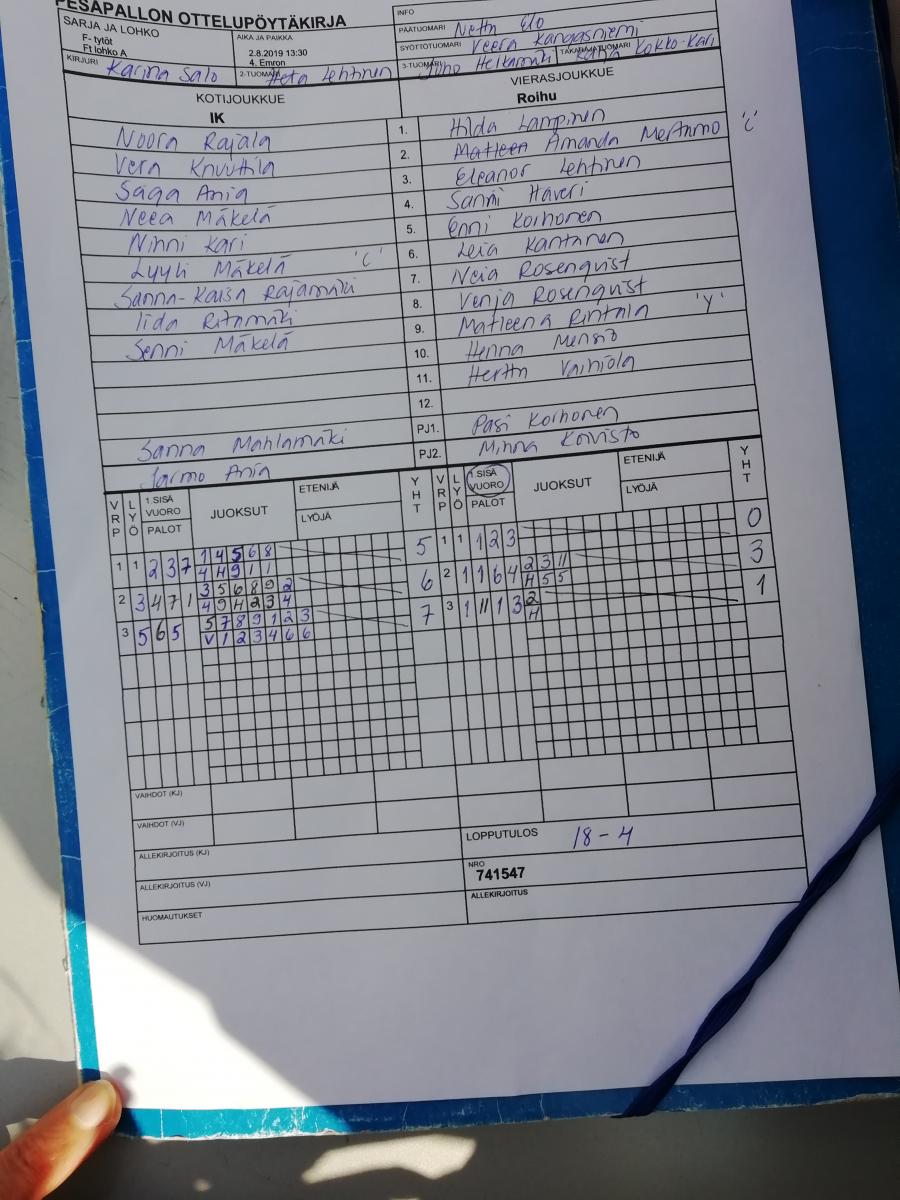 PESÄPALLON OTTELUPÖYTÄKIRJA
INFO
SARJA JA LOHKO
F- tytöt
Ft lohko A
AIKA JA PAIKKA
2.8.2019 13:30
4. Emron
PÄÄTUOMARI Netta Elo
SYÖTTÖTUOMARI Veera Kangasniemi
KIRJURI Karina Salo
2-TUOMARI Heta Lehtinen
3-TUOMARI
TAKARAJATUOMARI Kokko-Kari
KOTIJOUKKUE
IK
VIERASJOUKKUE
Roihu
Noora Rajala 1. Hilda Lampinen
Vera Knuuttila 2. Matleen Amanda Mertamo 'C'
Saga Ania 3. Eleanor Lehtinen
Neea Mäkelä 4. Sanni Haveri
Ninni Kari 5. Enni Korhonen
Lyyli Mäkelä 'C' 6. Leia Kantanen
Sanna-Kaisa Rajamäki 7. Neia Rosenqvist
Iida Ritamäki 8. Venja Rosenqvist
Senni Mäkelä 9. Matleena Rintala 'Y'
10. Henna
11. Hertta Vainiola
12.
Sanna Mahlamäki PJ1. Pasi Korhonen
Jarmo Ania PJ2. Minna Koivisto
VRP LYÖ 1.SISÄ VUORO PALOT JUOKSUT ETENIJÄ LYÖJÄ YHT
VRP LYÖ 1.SISÄ VUORO PALOT JUOKSUT ETENIJÄ LYÖJÄ YHT
1 1 2 3 7 1 4 5 6 8 5 1 1 1 2 3 0
4 4 9 1 1
2 3 4 7 1 3 5 6 8 9 2 6 2 1 1 6 4 2 3 11 3
4 9 H 2 3 4 H 5 5
3 5 6 5 5 7 8 9 1 2 3 7 3 1 11 1 3 2 1
V 1 2 3 4 6 6 H
VAIHDOT (KJ)
VAIHDOT (VJ)
LOPPUTULOS 18-4
ALLEKIRJOITUS (KJ)
NRO
741547
ALLEKIRJOITUS (VJ)
ALLEKIRJOITUS
HUOMAUTUKSET